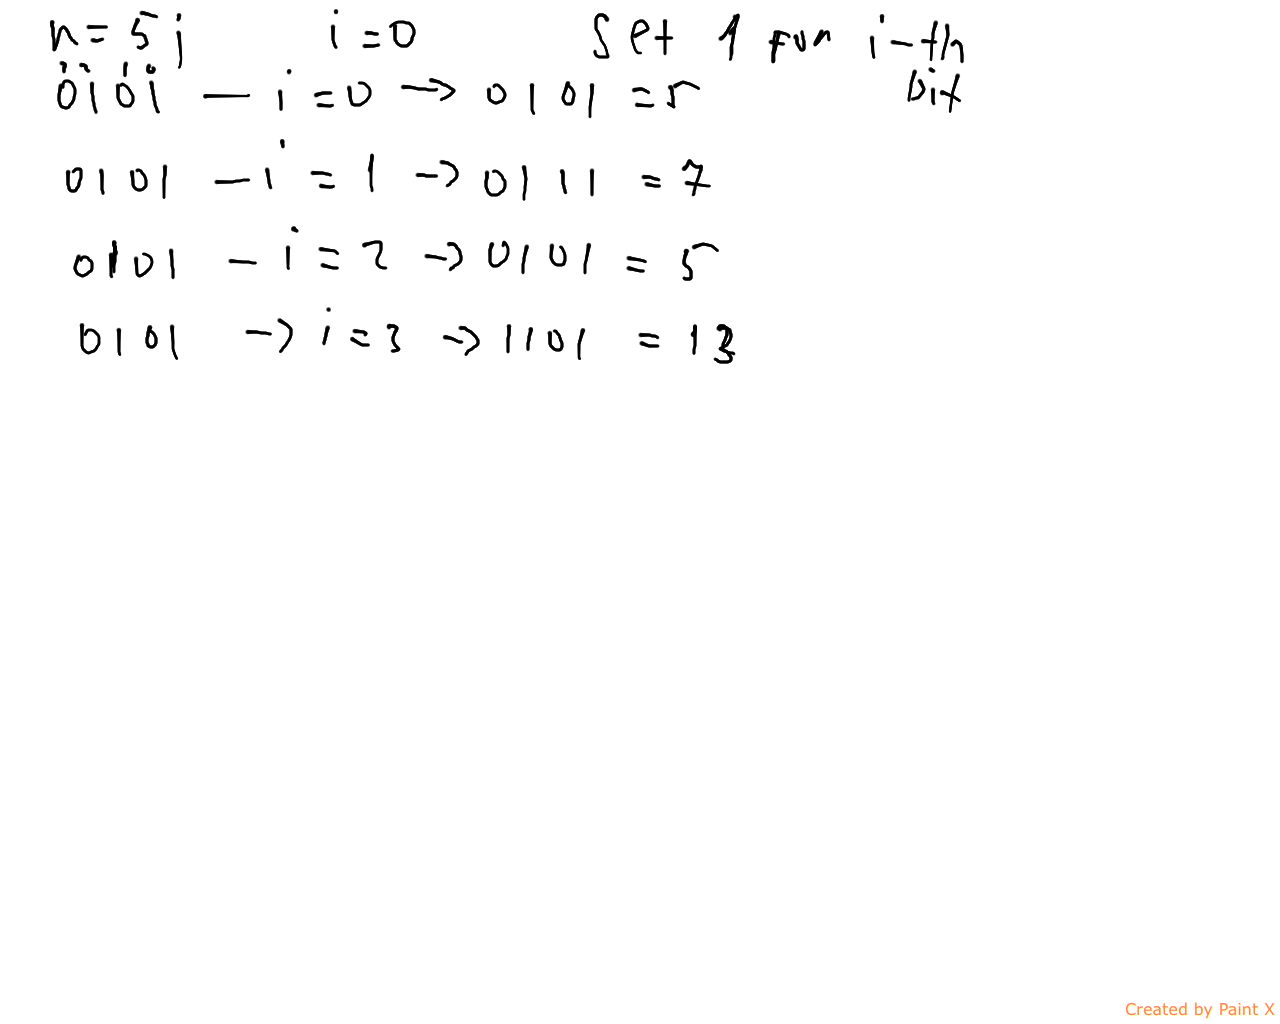 n = 5; i = 0 Set 1 for i-th bit
3 2 1 0
0101 — i = 0 → 0101 = 5
0101 — i = 1 → 0111 = 7
0101 — i = 2 → 0101 = 5
0101 → i = 3 → 1101 = 13
Created by Paint X